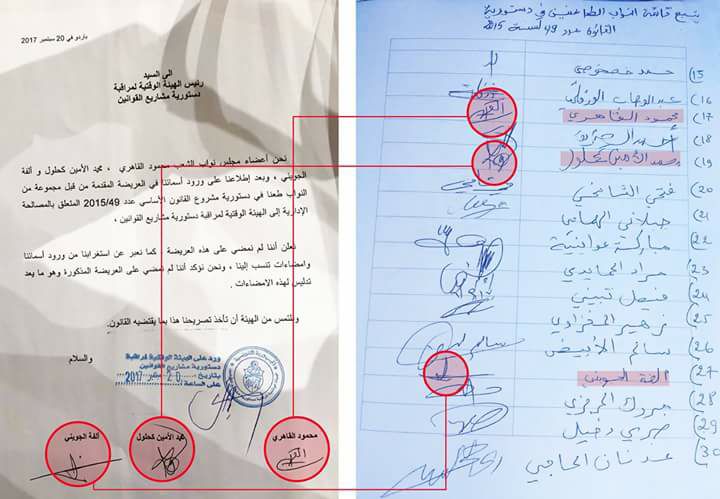 باردو في 20 سبتمبر 2017
الى السيد
رئيس الهيئة الوقتية لمراقبة
دستورية مشاريع القوانين
نحن أعضاء مجلس نواب الشعب محمود القاهري ، محمد الأمين كحلول و ألفة
الجويني ، وبعد إطلاعنا على ورود أسمائنا في العريضة المقدمة من قبل مجموعة من
النواب طعنا في دستورية مشروع القانون الأساسي عدد 2015/49 المتعلق بالمصالحة
الإدارية إلى الهيئة الوقتية لمراقبة دستورية مشاريع القوانين ،
نعلن أننا لم نمضي على هذه العريضة ، كما نعبر عن استغرابنا من ورود أسمائنا
وامضاءات تنسب إلينا ، ونحن نؤكد أننا لم نمضي على العريضة المذكورة وهو ما يعد
تدليس لهذه الامضاءات .
ونلتمس من الهيئة أن تأخذ تصريحنا هذا بما يقتضيه القانون.
والسلام
ورد على الهيئة الوقتية لمراقبة
دستورية مشاريع القوانين
بتاريخ 20 سبتمبر 2017
على الساعة
محمود القاهري
محمد الأمين كحلول
ألفة الجويني
يتبع قائمة النواب الطاعنين في دستورية
القانون عدد 49 لسنة 2015
15)
16) عبد الوهاب الورفلي
17) محمود القاهري
18) أحمد
19) محمد الأمين كحلول
20) فتحي الشامخي
21) جيلاني الهمامي
22) مباركة عواينية
23) مراد الحمايدي
24) فيصل تبيني
25) زهير المغزاوي
26) سالم الأبيض
27) ألفة الجويني
28) مبروك الحريزي
29) صبري دخيل
30) عدنان الحاجي